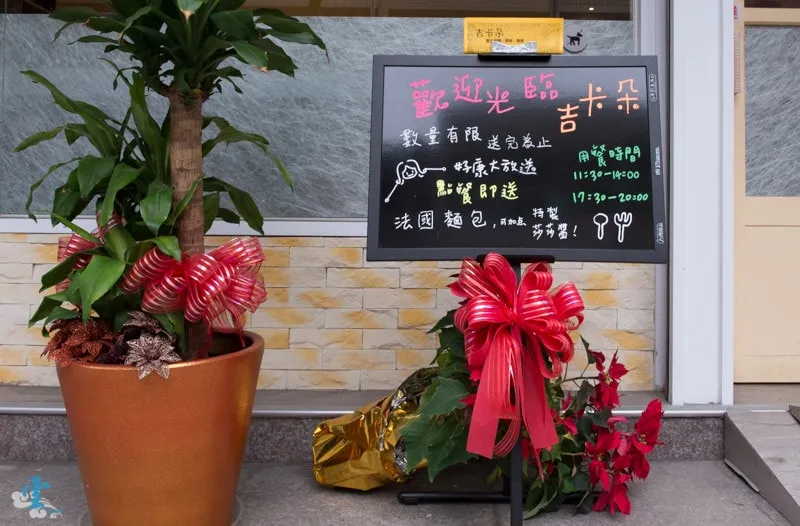 吉卡朵
歡迎光臨
吉卡朵
數量有限 送完為止
好康大放送
點餐即送
法國麵包,可加点 特製
莎莎醬!
用餐時間
11:30-14:00
17:30-20:00